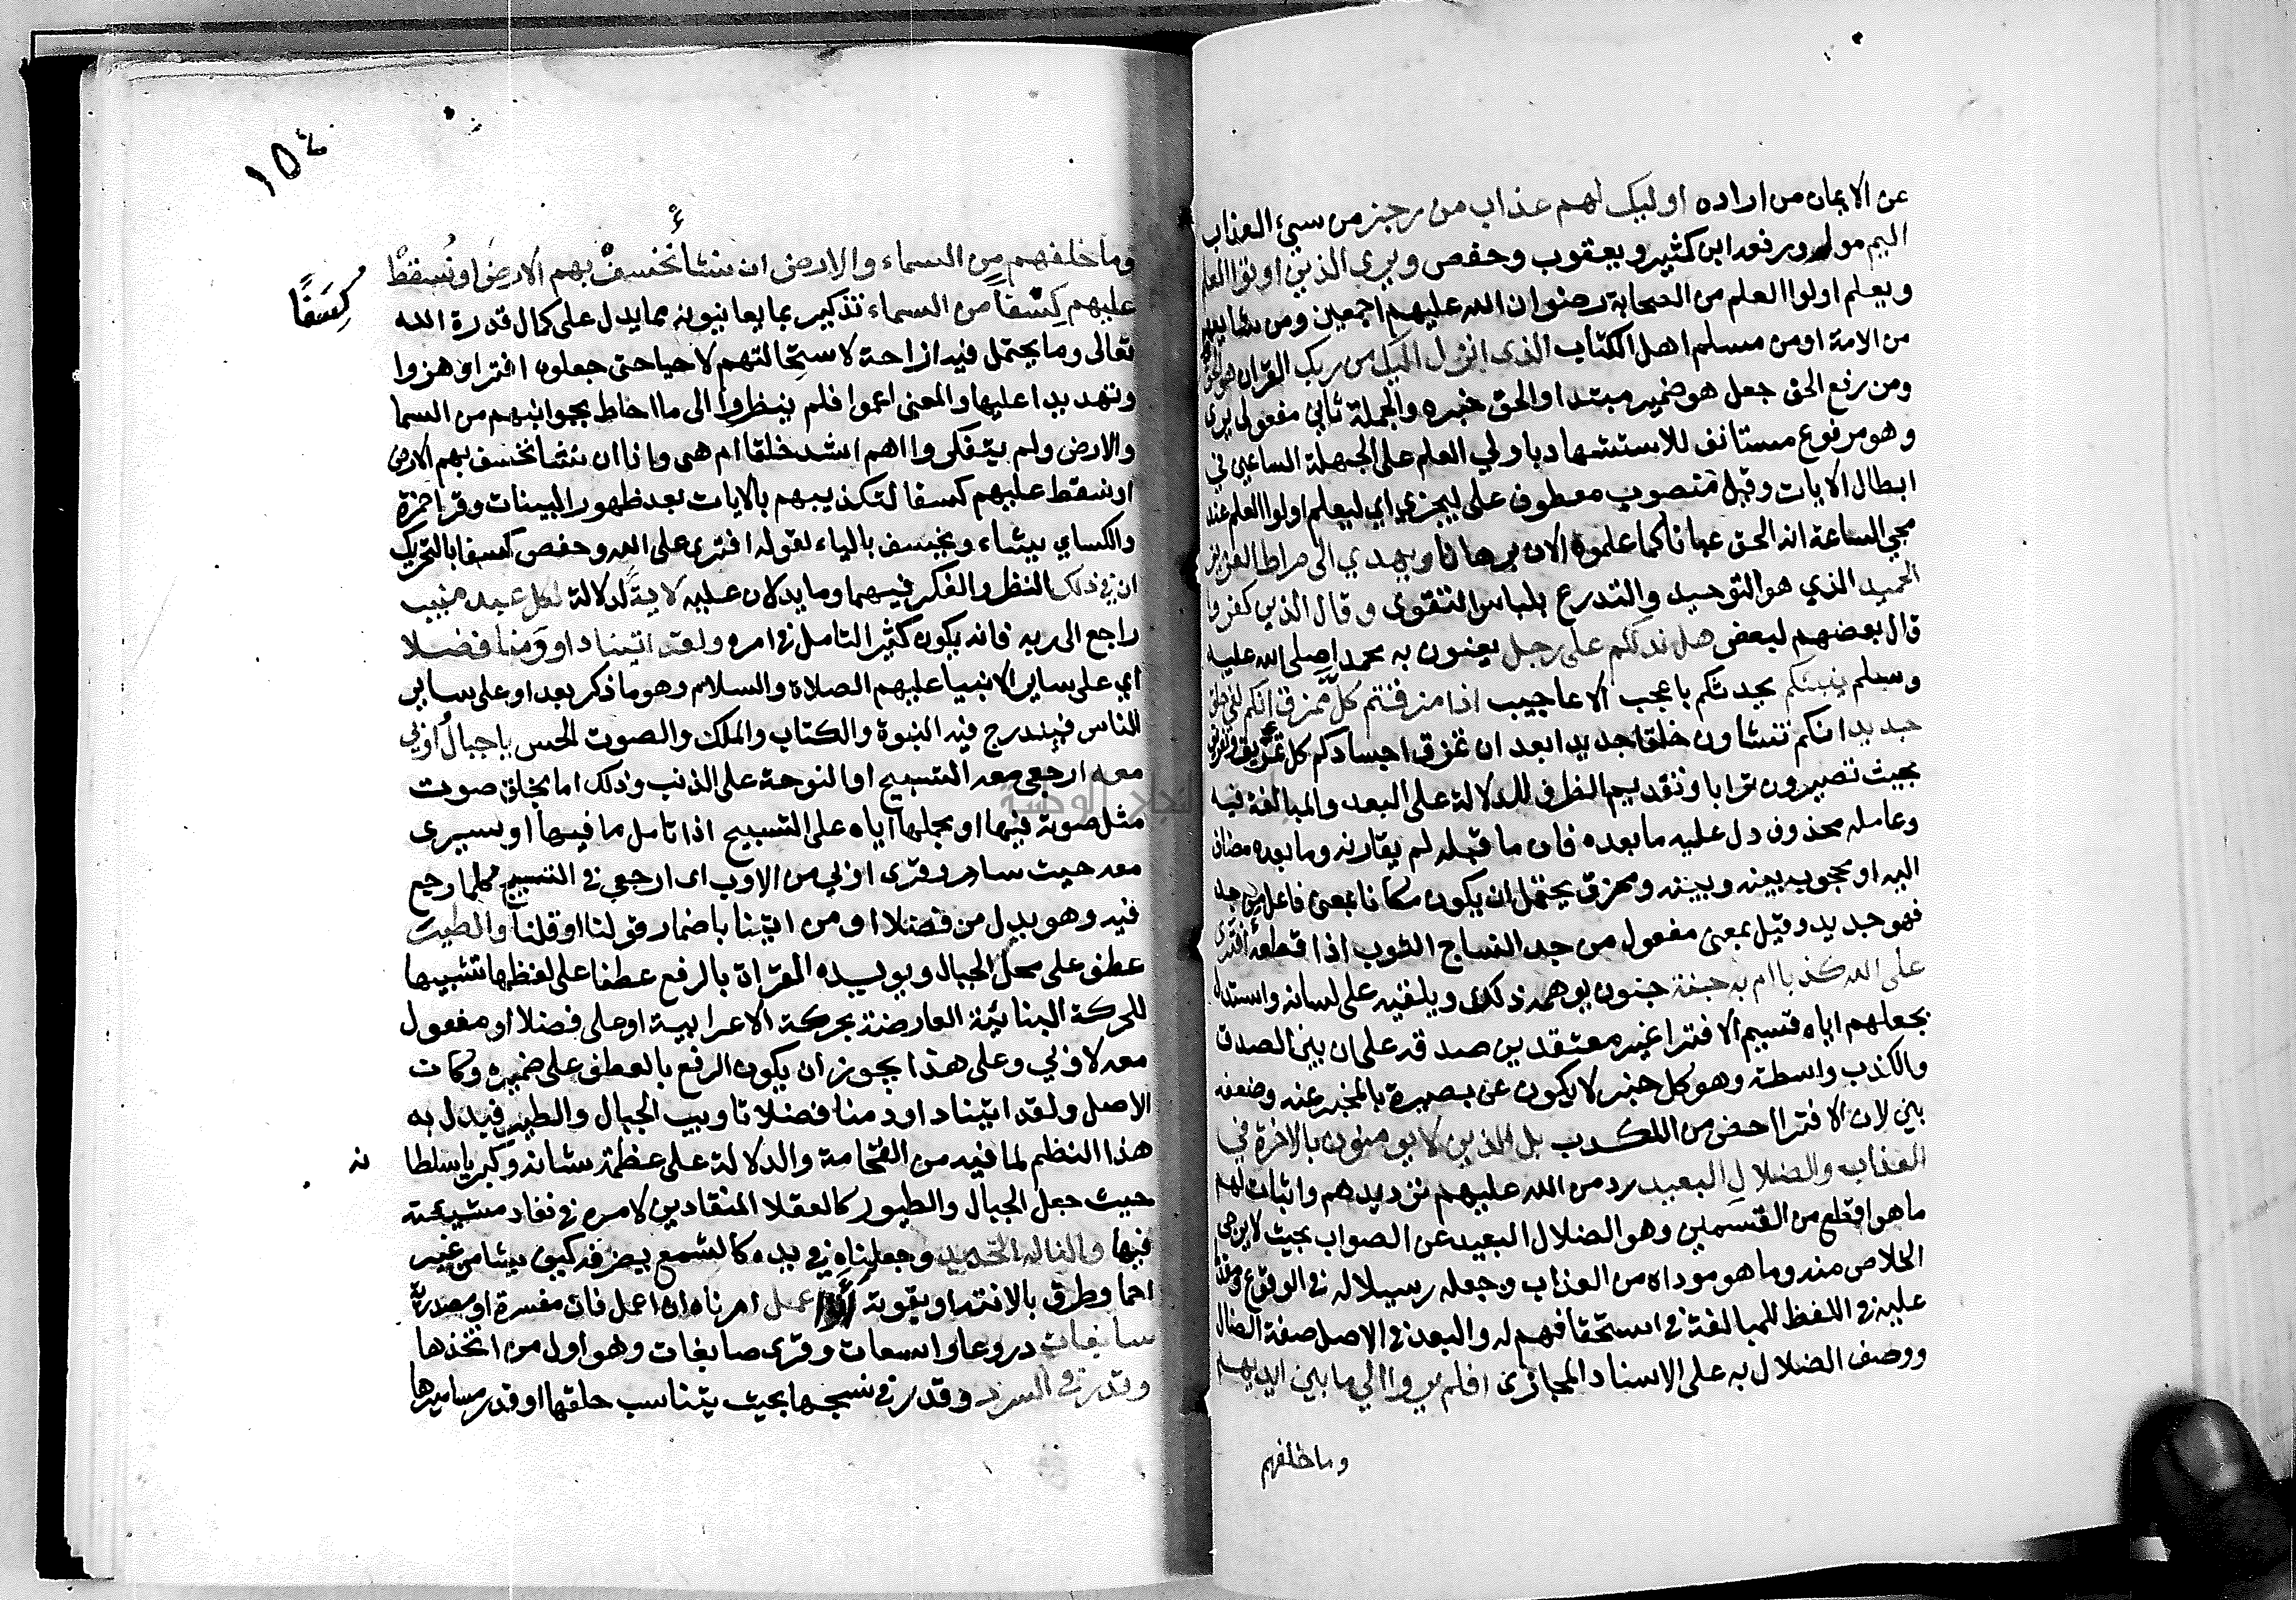 عن الايمان من اراده اوليك لهم عذاب من رجز من سيئ العذاب
اليم مولم ورفعه ابن كثير ويعقوب وحفص ويري الذين اوتوا العلم
ويعلم اولوا العلم من الصحابة رضوان الله عليهم اجمعين ومن شايعهم
من الامة او من مسلم اهل الكتاب الذى انزل اليك من ربك القران هو الحق
ومن رفع الحق جعل هو ضمير مبتدا والحق خبره والجملة ثاني مفعولى يرى
وهو مرفوع مستانف للاستشهاد باولي العلم على الجهلة الساعين في
ابطال الايات وقيل منصوب معطوف على ليجزي اي ليعلم اولوا العلم عند
مجي الساعة انه الحق عيانا كما علموه الان برهانا ويهدي الى صراط العزيز
الحميد الذي هو التوحيد والتدرع بلباس التقوى وقال الذين كفروا
قال بعضهم لبعض هل ندلكم على رجل يعنون به محمدا صلى الله عليه
وسلم ينبئكم يحدثكم باعجب الاعاجيب اذا مزقتم كل ممزق انكم لفي خلق
جديد انكم تنشاون خلقا جديدا بعد ان تمزق اجسادكم كل تمزيق وتفريق
بحيث تصيرون ترابا وتقديم الظرف للدلالة على البعد والمبالغة فيه
وعامله محذوف دل عليه ما بعده فان ما قبله لم يقارنه وما بعده مضاف
اليه او محجوب بينه وبينه وممزق يحتمل ان يكون مكانا بمعنى فاعل من جد
فهو جديد وقيل بمعنى مفعول من جد النساج الثوب اذا قطعه افترى
على الله كذبا ام به جنة جنون يوهمه ذلك ويلقيه على لسانه واستدل
بجعلهم اياه قسيم الافترا غير معتقدين صدقه على ان بين الصدق
والكذب واسطة وهو كل خبر لا يكون عن بصيرة بالمخبر عنه وضعفه
بين لان الافترا اخص من الكدب بل الذين لا يومنون بالاخرة في
العذاب والضلال البعيد رد من الله عليهم ترديدهم واثبات لهم
ما هو افظع من القسمين وهو الضلال البعيد عن الصواب بحيث لا يرجى
الخلاص منه وما هو موداه من العذاب وجعله رسيلا له في الوقوع ومقدما
عليه في اللفظ للمبالغة في استحقاقهم له والبعد في الاصل صفة الضال
ووصف الضلال به على الاسناد المجازى افلم يروا الي ما بين ايديهم
وما خلفهم
١٥٤
وما خلفهم من السماء والارض ان نشأ نخسف بهم الارض او نسقط
عليهم كسفا من السماء تذكير بما يعاينونه مما يدل على كمال قدرة الله
كِسَفًا
تعالى وما يحتمل فيه ازاحة لاستحالتهم لاحيا حتى جعلوه افترا وهزوا
وتهديدا عليها والمعنى اعموا فلم ينظروا الى ما احاط بجوانبهم من السما
والارض ولم يتفكروا اهم اشد خلقا ام هى وانا ان نشا نخسف بهم الارض
او نسقط عليهم كسفا لتكذيبهم بالايات بعد ظهور البينات وقرا حمزة
والكساي يشاء ويخسف بالياء لقوله افترى على الله وحفص كسفا بالتحريك
ان في ذلك النظر والفكر فيهما وما يدلان عليه لاية لدلالة لكل عبد منيب
راجع الى ربه فانه يكون كثير التامل في امره ولقد اتينا داوود منا فضلا
اي على ساير الانبيا عليهم الصلاة والسلام وهو ما ذكر بعد او على ساير
الناس فيندرج فيه النبوة والكتاب والملك والصوت الحسن يا جبال اوبي
معه ارجعي معه التسبيح او النوحة على الذنب وذلك اما بخلق صوت
مثل صوته فيها او بحملها اياه على التسبيح اذا تامل ما فيها او سيرى
معه حيث سار وقرى اوبي من الاوب اى ارجعي في التسبيح كلما رجع
فيه وهو بدل من فضلا او من اتينا باضمار قولنا او قلنا والطير
عطف على محل الجبال ويويده القراة بالرفع عطفا على لفظها تشبيها
للحركة البنائية العارضة بحركة الاعرابية او على فضلا او مفعول
معه لاوبي وعلى هذا يجوز ان يكون الرفع بالعطف على ضميره وكات
الاصل ولقد اتينا داود منا فضلا تاويب الجبال والطير فبدل به
هذا النظم لما فيه من الفخامة والدلالة على عظمة شانه وكبريا سلطا
نه
حيث جعل الجبال والطيور كالعقلا المنقادين لامره في نفاد مشيئته
فيها والنا له الحديد وجعلناه في يده كالشمع يصرفه كيف يشا من غير
احما وطرق بالانته او بقوته ان اعمل امرناه ان اعمل فان مفسرة او مصدرية
سابغات دروعا واسعات وقرى صابغات وهو اول من اتخذها
وقدر في السرد وقدر في نسجها بحيث يتناسب حلقها او قدر مساميرها